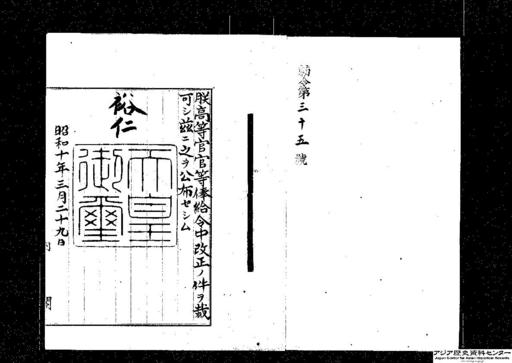 勅令第三十五號
朕高等官官等俸給令中改正ノ件ヲ裁
可シ茲ニ之ヲ公布セシム
裕仁
天皇御璽
昭和十年三月二十九日
内閣
アジア歴史資料センター
Japan Center for Asian Historical Records